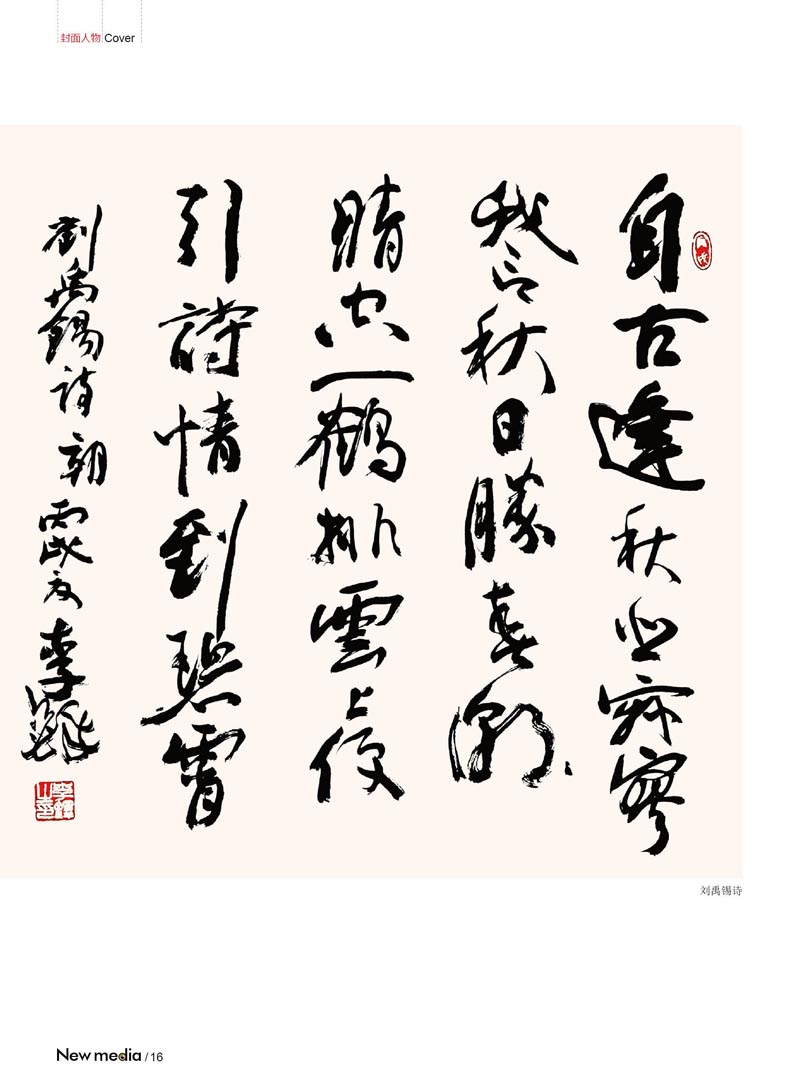 封面人物 Cover
自古逢秋悲寂寥
我言秋日勝春潮
晴空一鶴排雲上便
引詩情到碧霄
劉禹錫詩 朝 李
刘禹锡诗
New media / 16